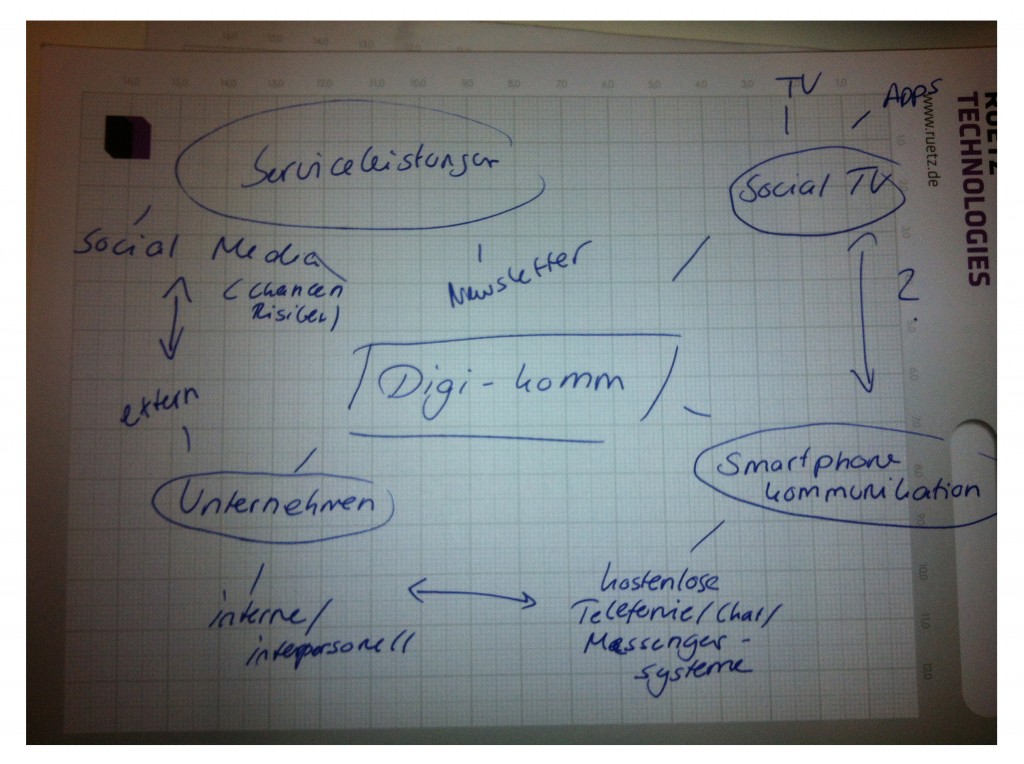 TV
Apps
www.ruetz.de
RUETZ
TECHNOLOGIES
Serviceleistungen
Social TV
Social Media
(Chancen
Risiken)
Newsletter
2.
Digi-komm
extern
Unternehmen
Smartphone
kommunikation
interne/
interpersonell
kostenlose
Telefonie/Chat/
Messenger-
systeme